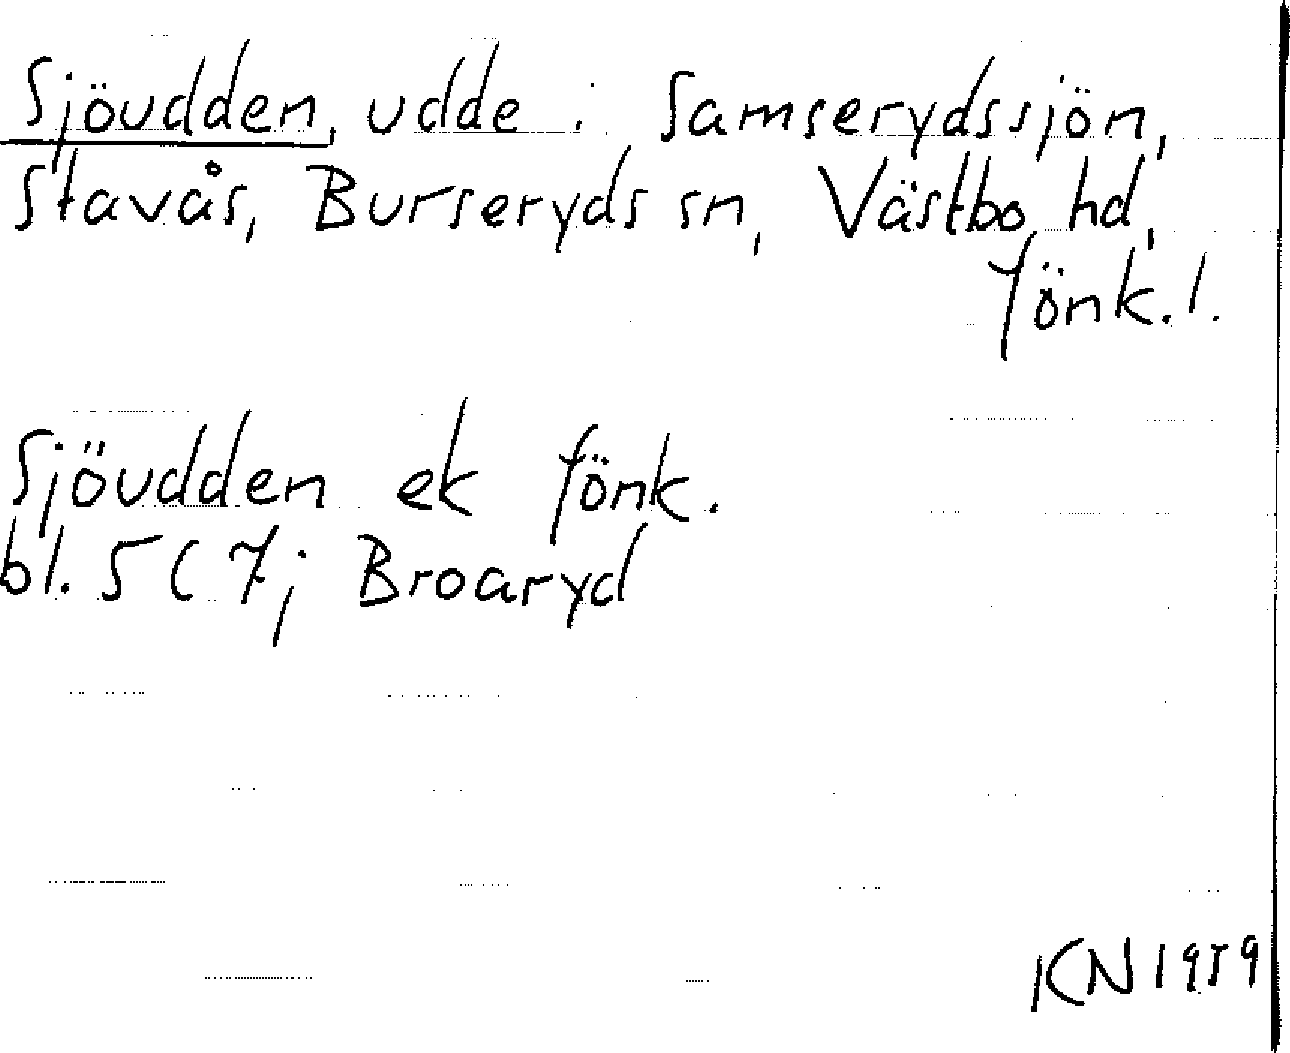 Sjöudden, udde i Samserydssjön,
Stavås, Burseryds sn, Västbo hd,
Jönk. l.
Sjöudden ek Jönk.
bl. 5 C 7; Broaryd
KN 1959